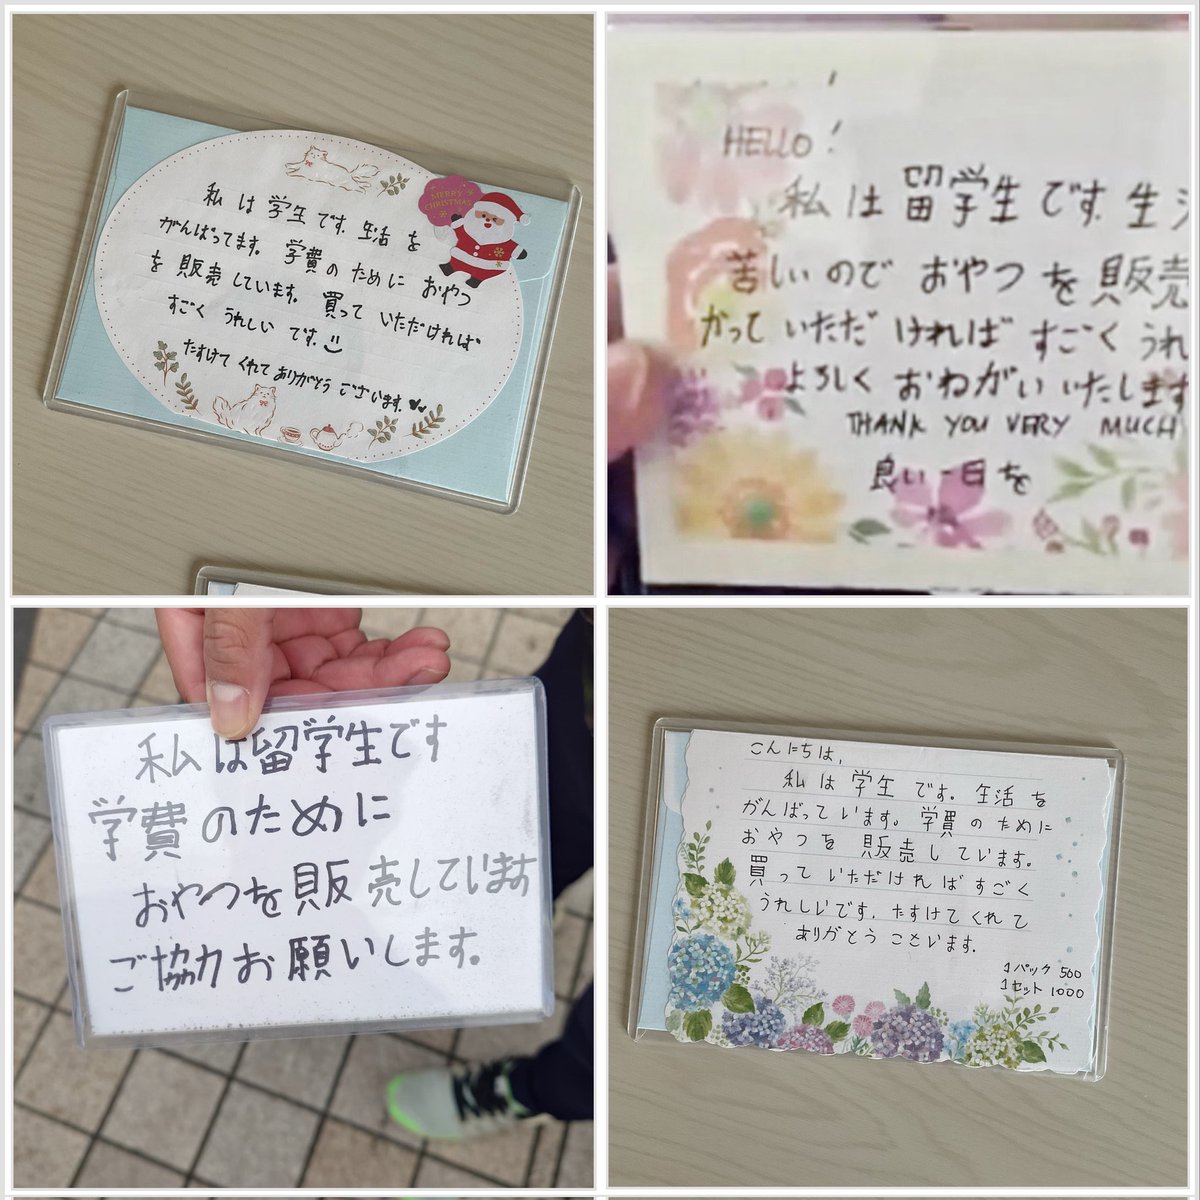 私は学生です。生活を
がんばってます。学費のためにおやつ
を販売しています。買っていただければ
すごくうれしいです。
たすけてくれてありがとうございます。
MERRY
CHRISTMAS
HELLO!
私は留学生です。生
苦しいのでおやつを販売
かっていただければすごくうれ
よろしくおねがいいたします
THANK YOU VERY MUCH
良い一日を
私は留学生です
学費のために
おやつを販売しています
ご協力お願いします。
こんにちは、
私は学生です。生活を
がんばっています。学費のために
おやつを販売しています。
買っていただければすごく
うれしいです。たすけてくれて
ありがとうございます。
1パック 500
1セット 1000